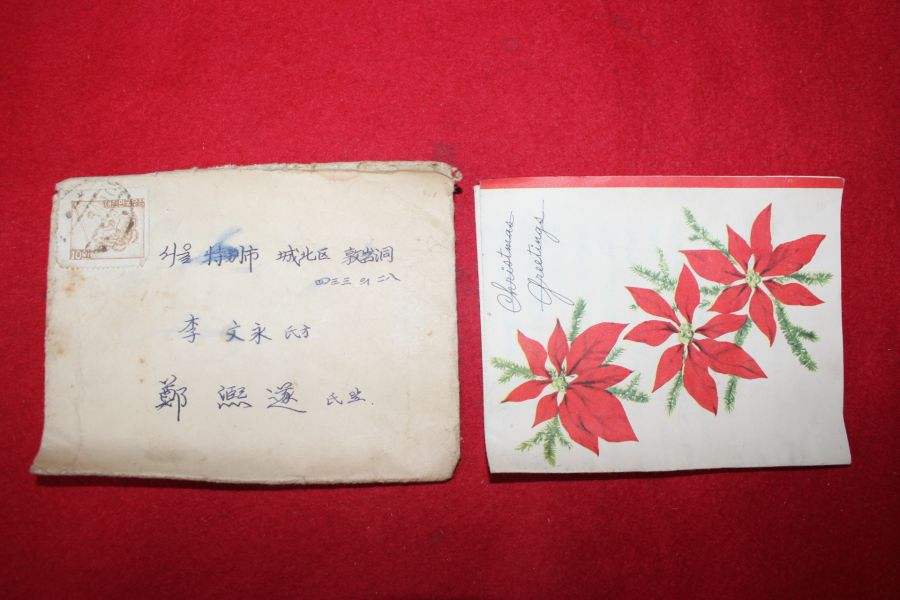 대한민국우표
서울 特別市 城北区 敦岩洞
四三三 의 二八
李 文永 氏方
鄭 熙遂 氏
Christmas
Greetings